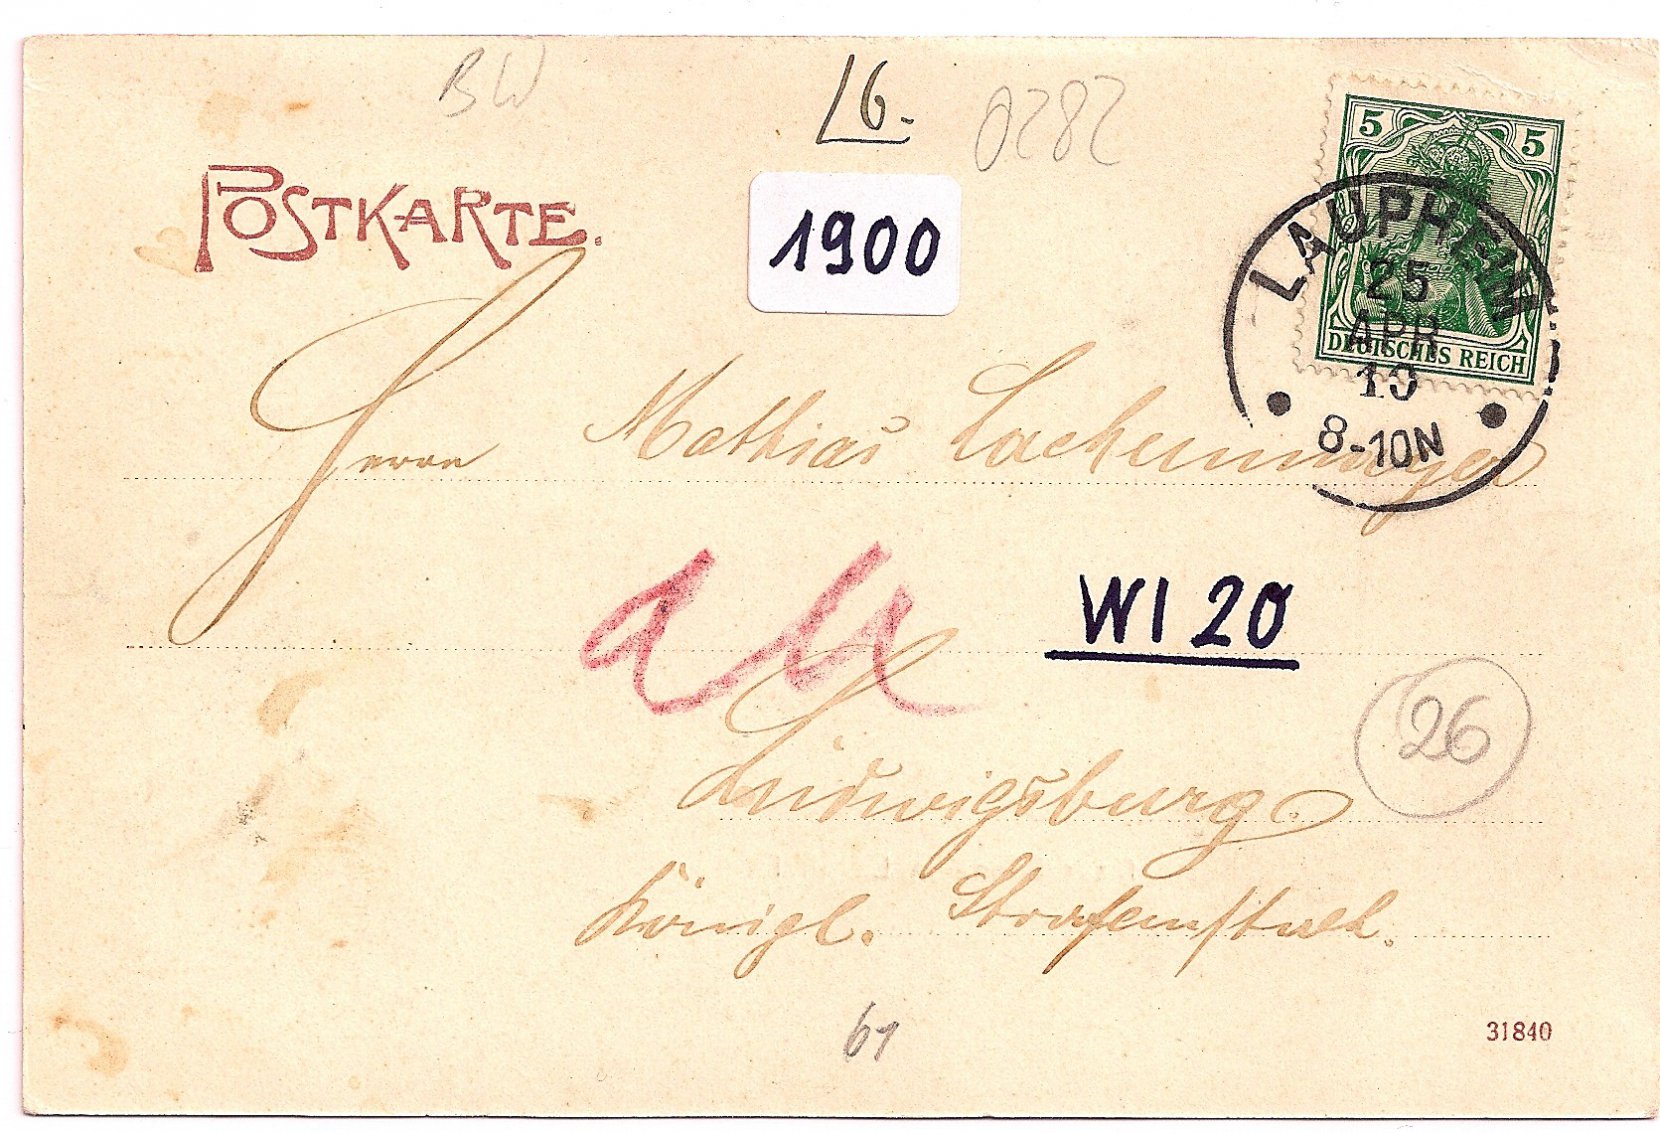 BW
L6.
0282
5 5
DEUTSCHES REICH
POSTKARTE.
1900
LAUPHEIM
25
APR
10
8-10N
Herrn Mathias Lachenmayer
WI 20
26
Ludwigsburg
Königl. Strafanstalt.
61
31840